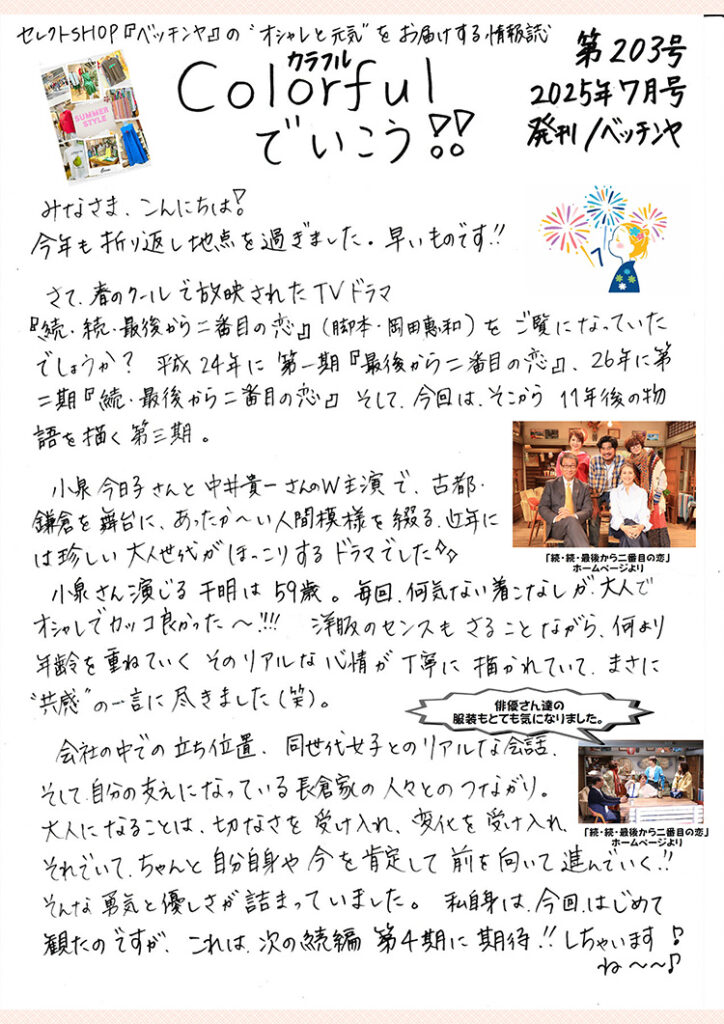 セレクトSHOP『ベッチンヤ』の"オシャレと元気"をお届けする情報誌
カラフル
Colorful
でいこう!!
第203号
2025年7月号
発刊/ベッチンヤ
SUMMER
STYLE
みなさま、こんにちは!
今年も折り返し地点を過ぎました。早いものです!!
さて、春のクールで放映されたTVドラマ
『続・続・最後から二番目の恋』(脚本・岡田惠和)をご覧になっていた
でしょうか? 平成24年に第一期『最後から二番目の恋』、26年に第
二期『続・最後から二番目の恋』そして、今回は、そこから11年後の物
語を描く第三期。
「続・続・最後から二番目の恋」
ホームページより
小泉今日子さんと中井貴一さんのW主演で、古都・
鎌倉を舞台に、あったか〜い人間模様を綴る、近年に
は珍しい大人世代がほっこりするドラマでした
小泉さん演じる千明は59歳。毎回、何気ない着こなしが、大人で
オシャレでカッコ良かった〜!!! 洋服のセンスもさることながら、何より
年齢を重ねていくそのリアルな心情が丁寧に描かれていて、まさに
"共感"の一言に尽きました(笑)。
俳優さん達の
服装もとても気になりました。
会社の中での立ち位置、同世代女子とのリアルな会話、
そして、自分の支えになっている長倉家の人々とのつながり。
大人になることは、切なさを受け入れ、変化を受け入れ、
それでいて、ちゃんと自分自身や今を肯定して前を向いて進んでいく!!
「続・続・最後から二番目の恋」
ホームページより
そんな勇気と優しさが詰まっていました。私自身は、今回、はじめて
観たのですが、これは、次の続編 第4期に期待!!しちゃいます
ね〜〜♪